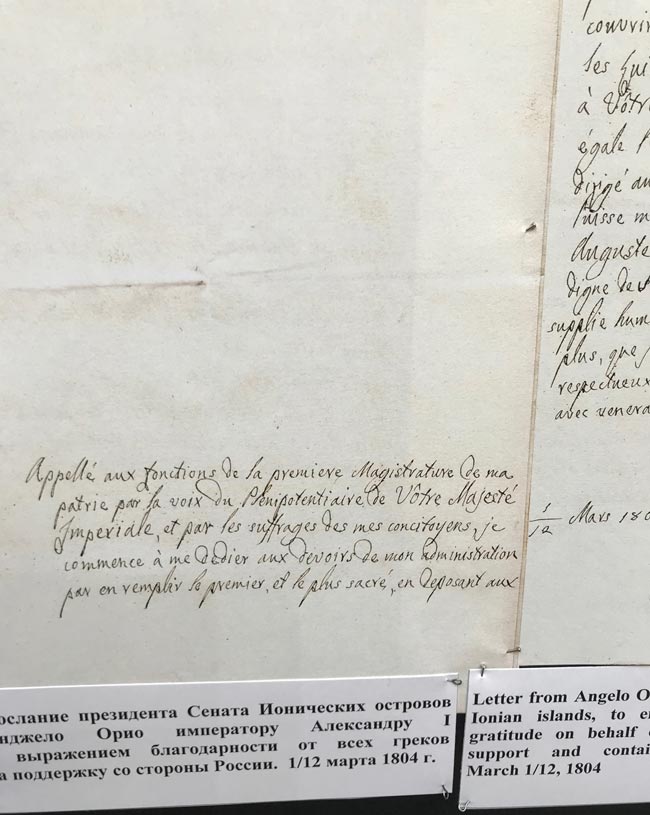 Appellé aux fonctions de la premiere Magistrature de ma
patrie par la voix du Plénipotentiaire de Vôtre Majesté
Imperiale, et par les suffrages des mes concitoyens, je
commence à me dedier aux devoirs de mon administration
par en remplir le premier, et le plus sacré, en deposant aux
couvrir
les
à Vôtre
égale l'
dirigé au
puisse m
Auguste
digne de
supplie hum
plus, que
respectueux
avec venera
1/12 Mars 180
ослание президента Сената Ионических островов
нджело Орио императору Александру I
выражением благодарности от всех греков
а поддержку со стороны России. 1/12 марта 1804 г.
Letter from Angelo O
Ionian islands, to e
gratitude on behalf
support and contai
March 1/12, 1804